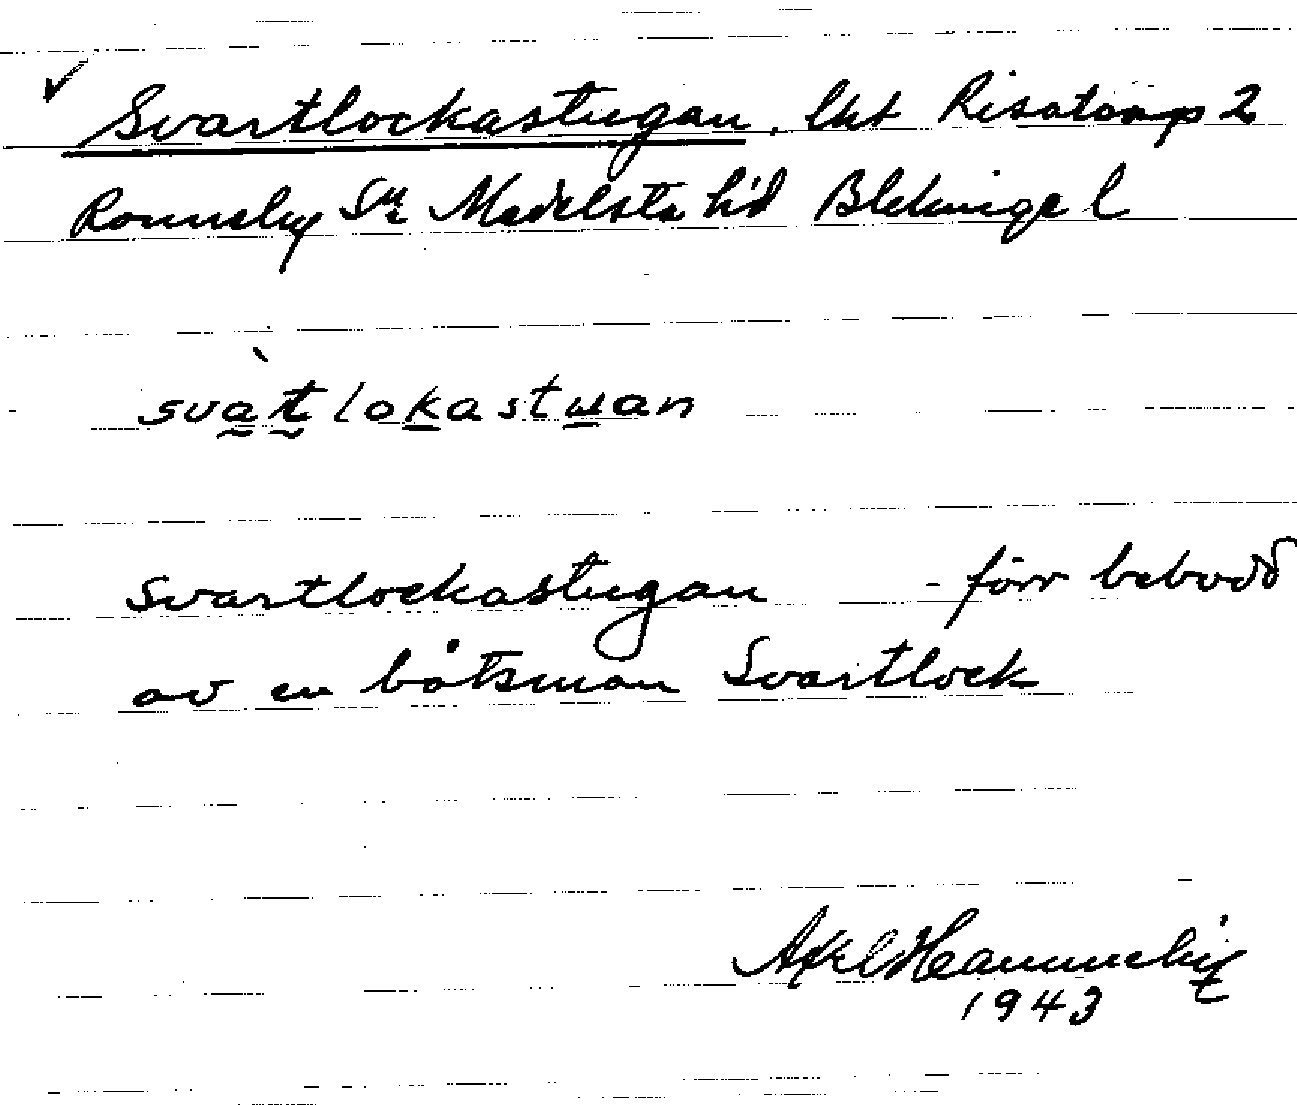 Svartlockastugan. lht Risatorp 2
Ronneby Sn Medelsta hd Blekinge l
svàtlokastuan
Svartlockastugan - förr bebodd
av en båtsman Svartlock
Axel
1943